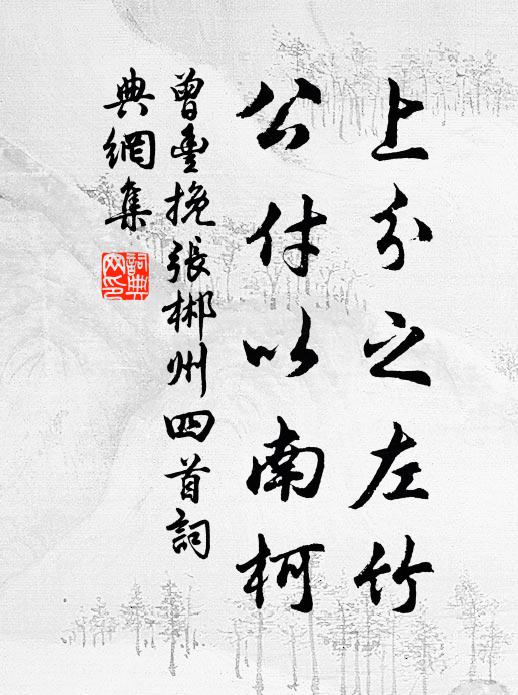 上分之左竹
公付以南柯
曾丰挽張郴州四首詞
典網集
詞典
网印